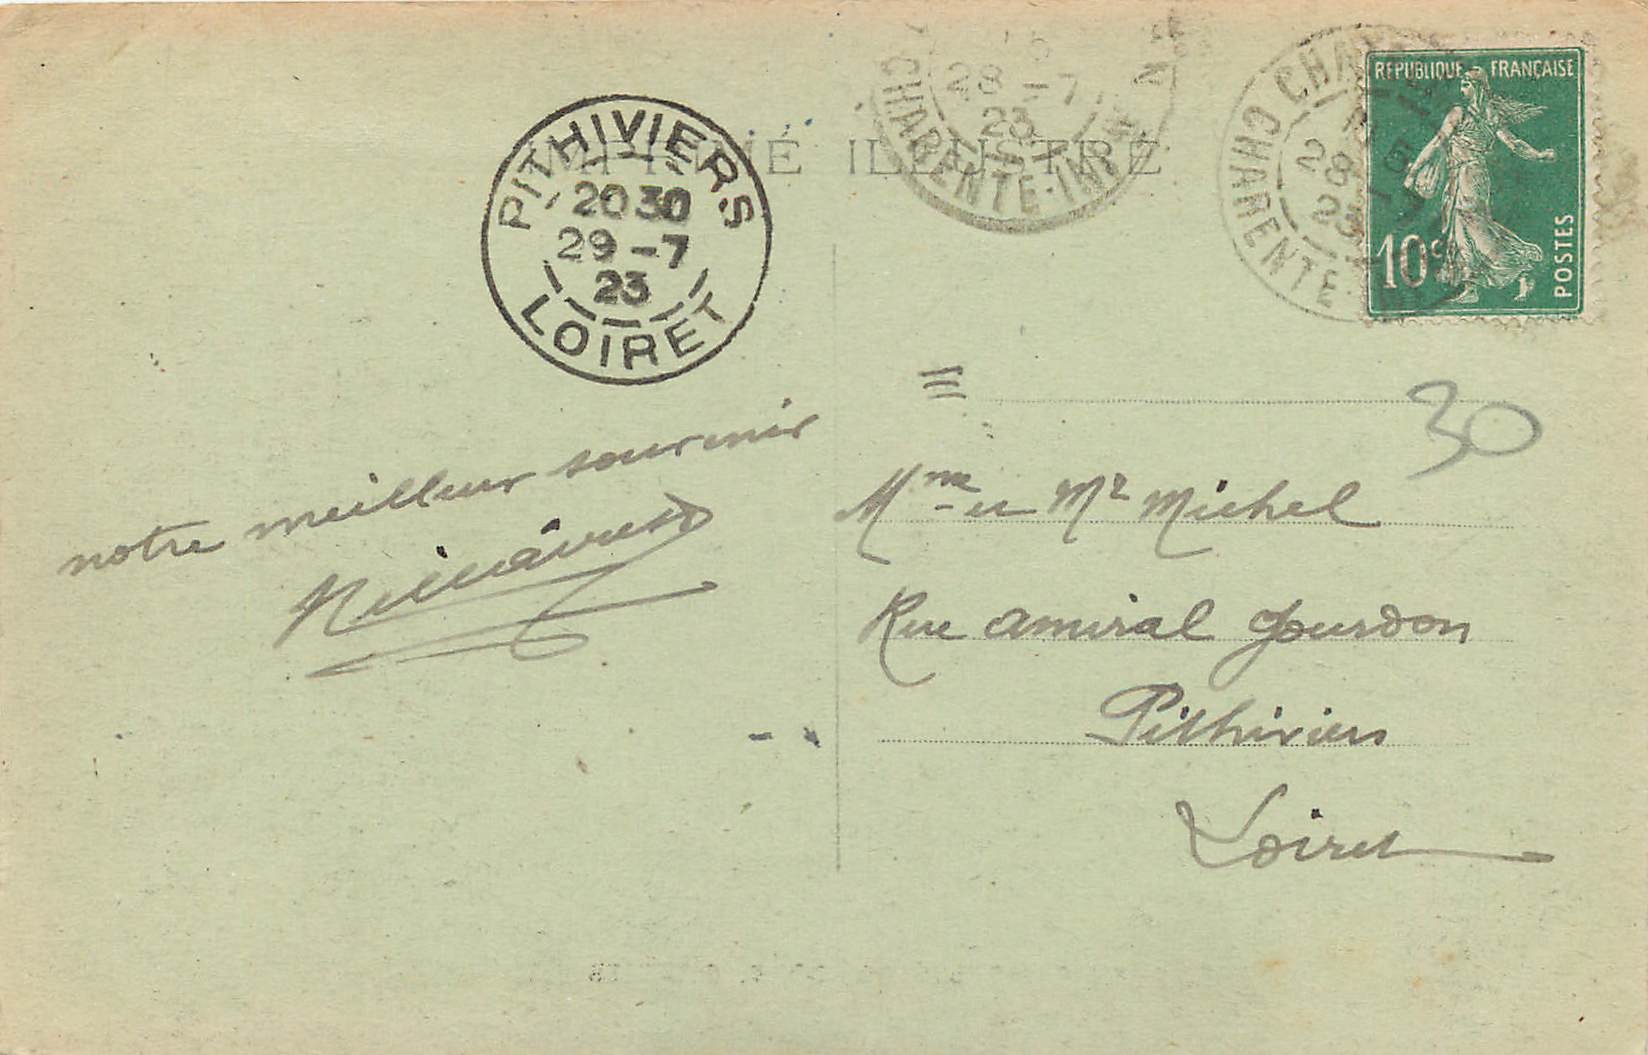 IMPRIMÉ ILLUSTRÉ
PITHIVIERS
20 30
29 -7
23
LOIRET
28 -7
23
CHARENTE-INF
28
23
CHARENTE
REPUBLIQUE FRANÇAISE
10c
POSTES
30
notre meilleur souvenir
Mme et Mr Michel
Rue amiral Gourdon
Pithiviers
Loiret